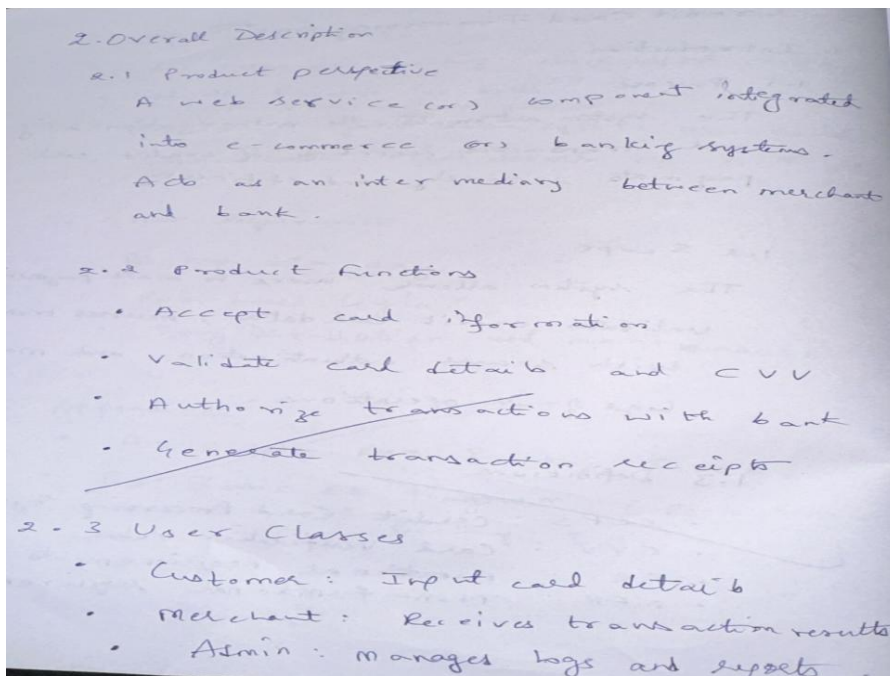 2. Overall Description
2.1 Product perspective
A web service (or) component integrated
into e-commerce (or) banking systems.
Acts as an intermediary between merchant
and bank.
2.2 Product Functions
• Accept card information
• Validate card details and CVV
• Authorize transactions with bank
• Generate transaction receipts
2.3 User Classes
• Customer: Input card details
• Merchant: Receives transaction results
• Admin: manages logs and reports.